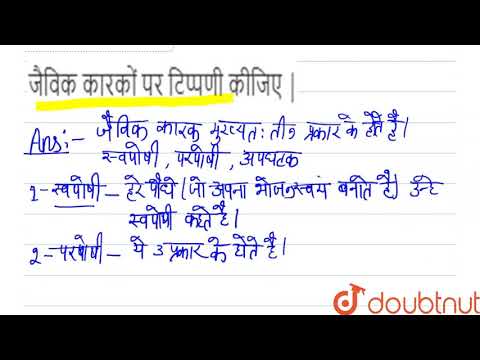 जैविक कारकों पर टिप्पणी कीजिए |
Ans:- जैविक कारक मुख्यतः तीन प्रकार के होते है।
स्वपोषी, परपोषी, अपघटक
1- स्वपोषी - हरे पौधे (जो अपना भोजन स्वयं बनाते है) उन्हे
स्वपोषी कहते है।
2- परपोषी - ये 3 प्रकार के होते है।
doubtnut